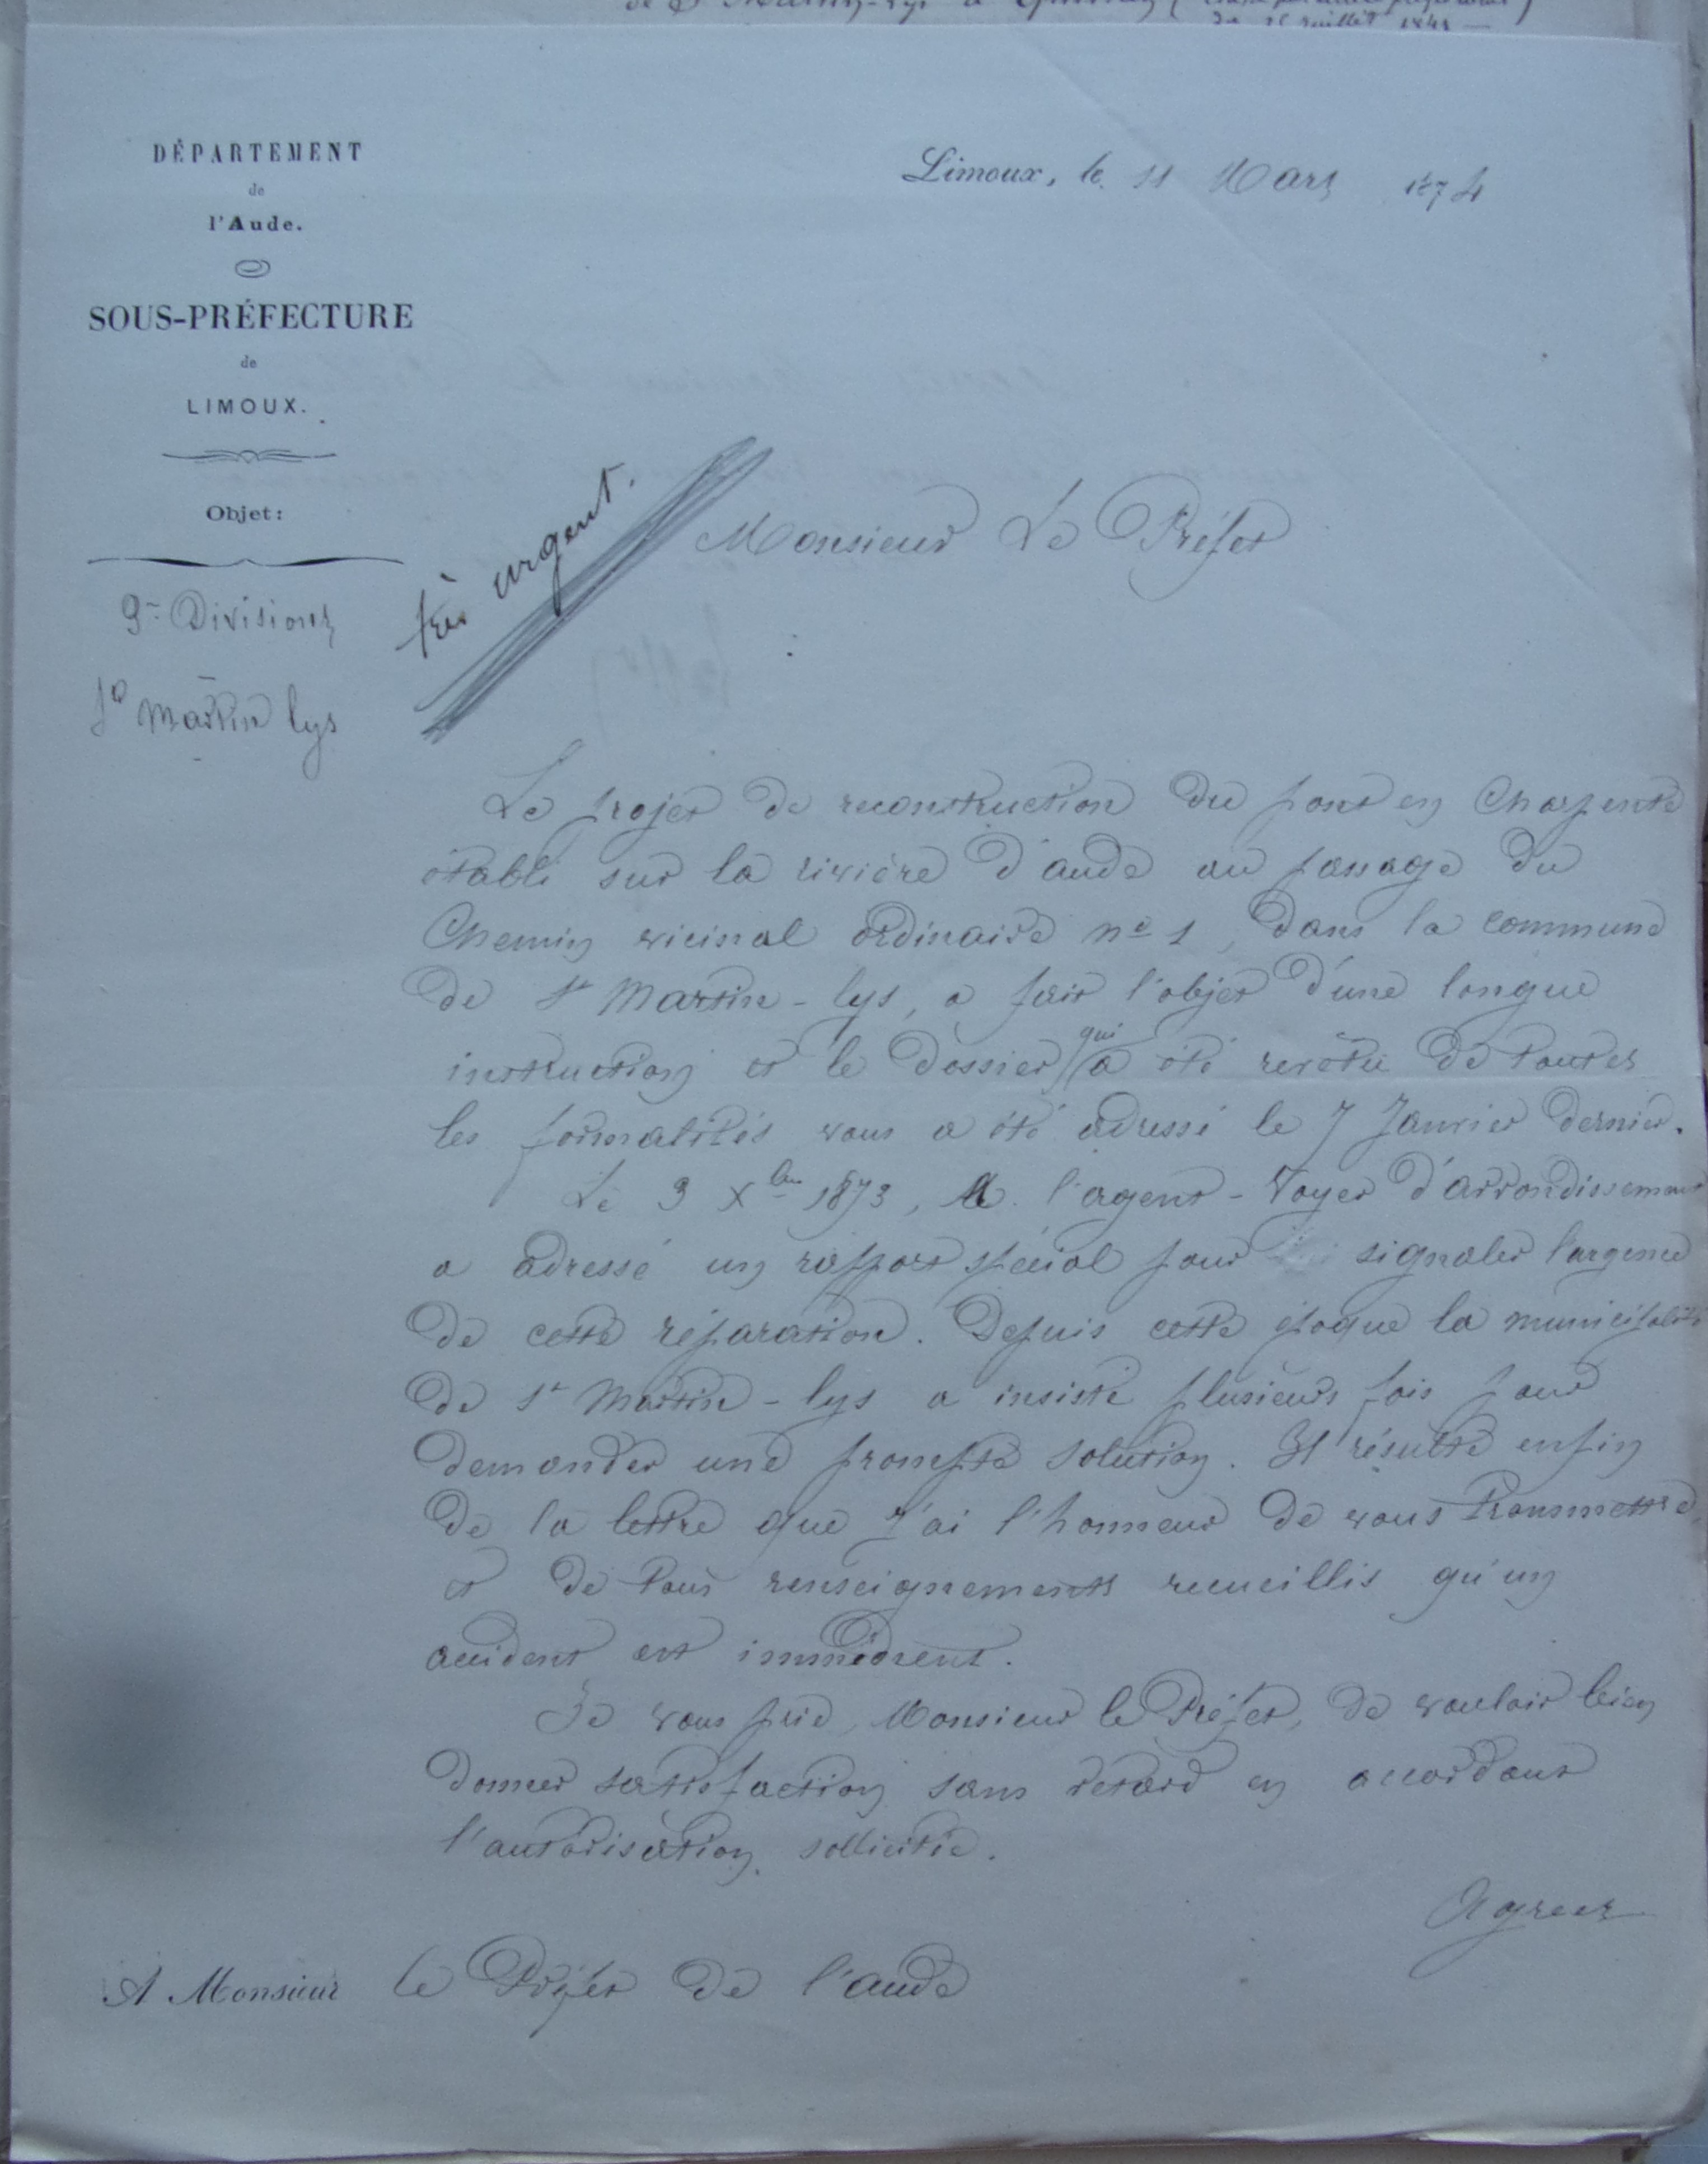 DÉPARTEMENT
de
l'Aude.
SOUS-PRÉFECTURE
de
LIMOUX.
Objet:
3e Division
St Martin lys
Limoux, le 11 Mars 1874
très urgent.
Monsieur Le Préfet
Le projet de reconstruction du pont en charpente
établi sur la rivière d'aude au passage du
Chemin vicinal ordinaire no 1, dans la commune
de St Martin-lys, a fait l'objet d'une longue
instruction et le dossier qui a été revêtu de toutes
les formalités vous a été adressé le 7 Janvier dernier.
Le 3 Xbre 1873, M. l'agent-Voyer d'arrondissement
a adressé un rapport spécial pour signaler l'urgence
de cette réparation. Depuis cette époque la municipalité
de St Martin-lys a insisté plusieurs fois pour
demander une prompte solution. Il résulte enfin
de la lettre que j'ai l'honneur de vous transmettre
et de tous renseignements recueillis qu'un
accident est imminent.
Je vous prie, Monsieur le Préfet, de vouloir bien
donner satisfaction sans retard en accordant
l'autorisation sollicitée.
Agréer
A Monsieur le Préfet de l'aude